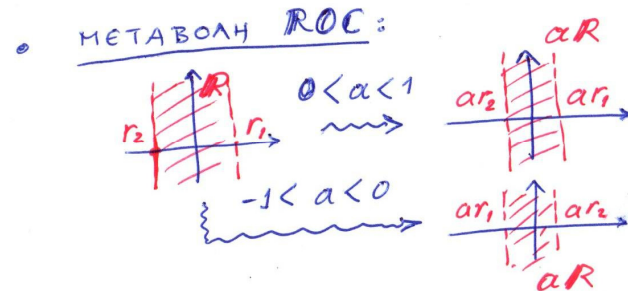 • ΜΕΤΑΒΟΛΗ ROC:
R
r₂ r₁
0 < a < 1
aR
ar₂ ar₁
-1 < a < 0
ar₁ ar₂
aR